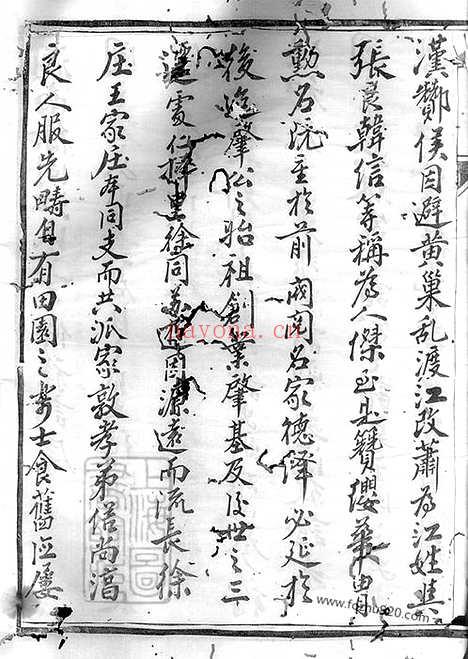 漢酇侯因避黃巢乱渡江改蕭為江姓其
張良韓信等稱為人傑至是簪纓華冑
勳名既重於前閥閱名家德繹必延於
後迨肇公之貽祖創業肇基及後世之三
遷處仁擇里徐同 源遠而流長徐
庄王家庄本同支而共派家敦孝弟俗尚淳
良人服先疇自有田園之 士食舊 屢
nayona.cn
www.fozhu920.com